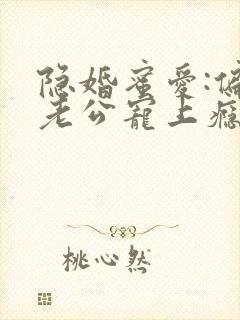 隐婚蜜爱:偏
老公宠上瘾
桃心然